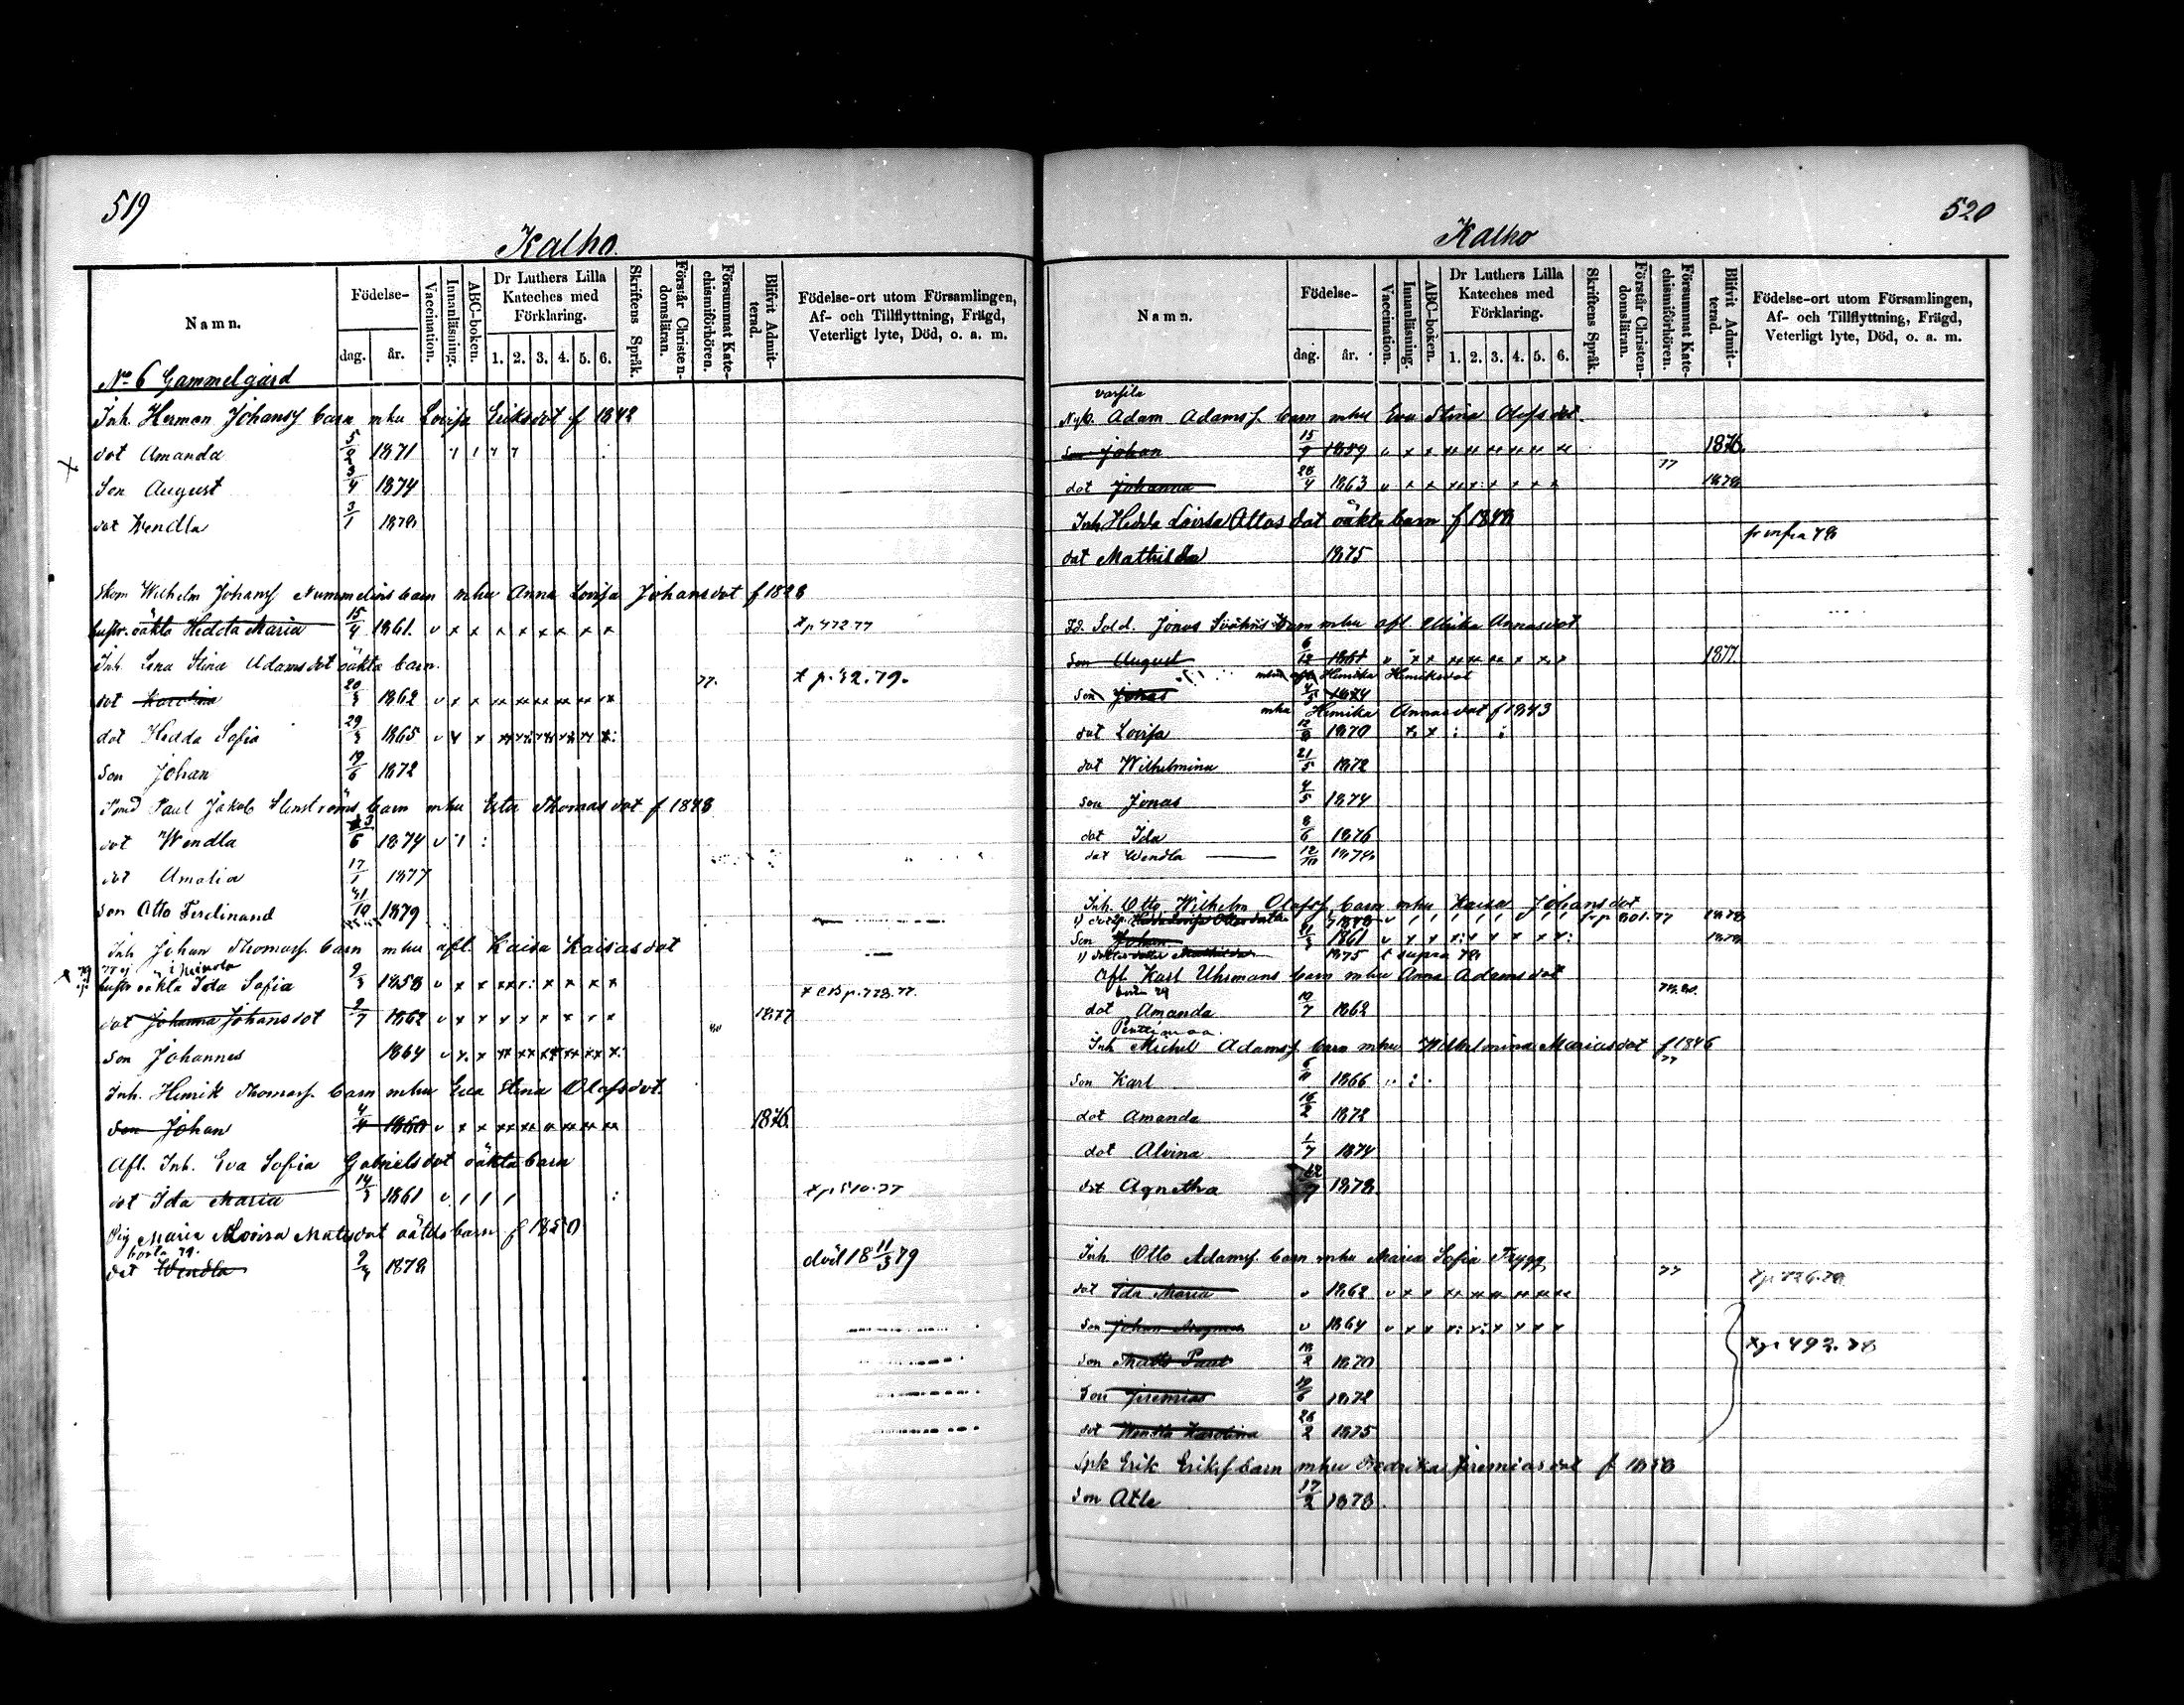 519
Kalho.
Namn.
Födelse-
dag.
år.
Vaccination.
Innanläsning.
ABC-boken.
Dr Luthers Lilla Kateches med Förklaring.
1. 2. 3. 4. 5. 6.
Skriftens Språk.
Förstår Christendomsläran.
Försummat Katechismiförhören.
Blifvit Admitterad.
Födelse-ort utom Församlingen,
Af- och Tillflyttning, Frägd,
Veterligt lyte, Död, o. a. m.
No 6 Gammelgård
Inh. Herman Johansf barn mhu Lovisa Eriksdot f 1842
dot Amanda 5/2 1871
Son August 3/4 1874
dot Wendla 3/1 1878
Skom Wilhelm Johansf Nummelins barn mhu Anna Lovisa Johansdot f 1828
hustr. oäkta Hedda Maria 15/4 1861 v x x x x x x x x
Inh. Lena Stina Adamsdot oäkta barn.
dot Karolina 20/3 1862 v x x 77.
dot Hedda Sofia 29/3 1865
Son Johan 19/6 1872
Paul Jakob Stenströms barn mhu Ester Thomasdot f 1848
dot Wendla 23/6 1874
dot Amalia 17/1 1877
Son Otto Ferdinand 1879
Inh Johan Thomasf. barn mhu afl. Kaisa Kaisasdot
hustr oäkta Ida Sofia 9/3 1858 v x x
dot Johanna Johansdot 2/7 1862 v x x x x x x x x 1877
Son Johannes 1864
Inh. Henrik Thomasf. barn mhu Eva Stina Olofsdot.
Son Johan 4/4 1860 1876
Afl. Inh. Eva Sofia Gabrielsdot oäkta barn
dot Ida Maria 14/3 1861 x p 510.77
Pig Maria Lovisa Matsdot oäkta barn f 1850
borta 79.
dot Wendla 2/3 1878 död 18 11/3 79
520
Kalho
Namn.
Födelse-
dag.
år.
Vaccination.
Innanläsning.
ABC-boken.
Dr Luthers Lilla Kateches med Förklaring.
1. 2. 3. 4. 5. 6.
Skriftens Språk.
Förstår Christendomsläran.
Försummat Katechismiförhören.
Blifvit Admitterad.
Födelse-ort utom Församlingen,
Af- och Tillflyttning, Frägd,
Veterligt lyte, Död, o. a. m.
Adam Adamsf. barn mhu Eva Stina Olofsdot.
Son Johan 15/9 1859 1876.
dot Johanna 28/4 1863 77 1878
Inh Hedda Lovisa Ottosdot oäkta barn f 1848
dot Mathilda 1875 fr infra 78
Fd. Sold. Jonas barn mhu afl. Ulrika Annasdot
Son August 6/12 1861 1877
Henrika Henriksdot
Son Jonas 4/5 1874
mhu Henrika Annasdot f 1843
dot Lovisa 1870
dot Wilhelmina 21/5 1872
son Jonas 4/5 1874
dot Ida 8/6 1876
dot Wendla 12/10 1878
Inh. Otto Wilhelm Olofsf. barn mhu Kaisa Johansdot
Son Johan 21/3 1861 1878
1875 t supra 78
Afl Karl Uhrmans barn mhu Anna Adamsdot
dot Amanda 19/7 1862
Penttimaa.
Inh Michel Adamsf. barn mhu Wilhelmina Mariasdot f 1846
Son Karl 1866 77
dot Amanda 16/2 1872
dot Alvina 1/7 1874
dot Agnetha 1878
Inh Otto Adamsf. barn mhu Maria Sofia Trygg
dot Ida Maria 1862 77
Son Johan Magnus 1864
Son Matts Paul 1870
Son Jeremias 19/6 1872
dot Wendla Karolina 26/2 1875
x p. 493.78
Spk Erik Eriksf barn mhu Fredrika Jeremiasdot f
Son Atle 17/2 1878